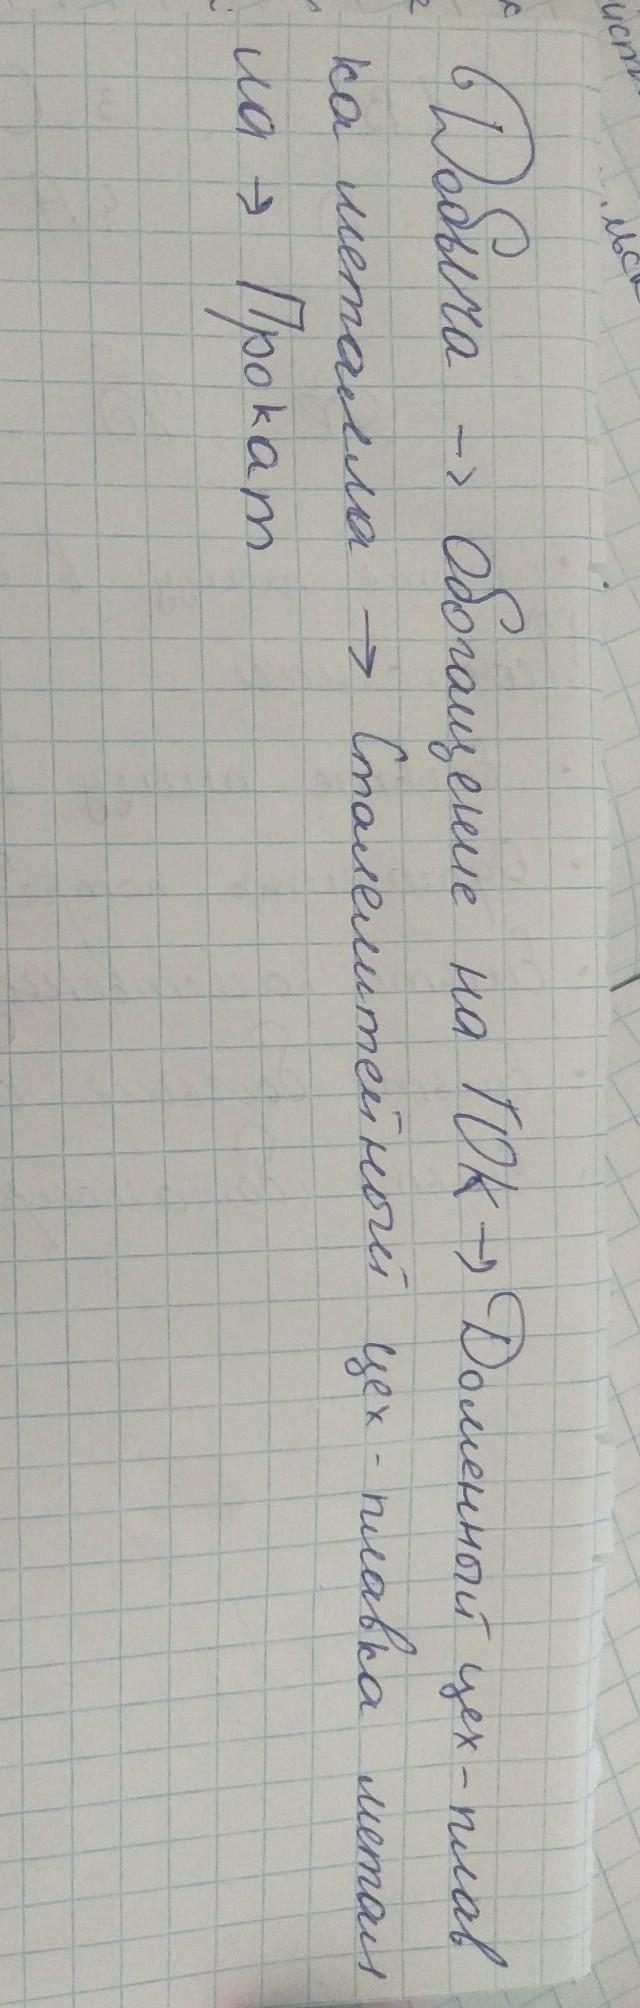 Добыча → Обогащение на ГОК → Доменный цех - плав
ка металла → Сталелитейный цех - плавка метал
ла → Прокат